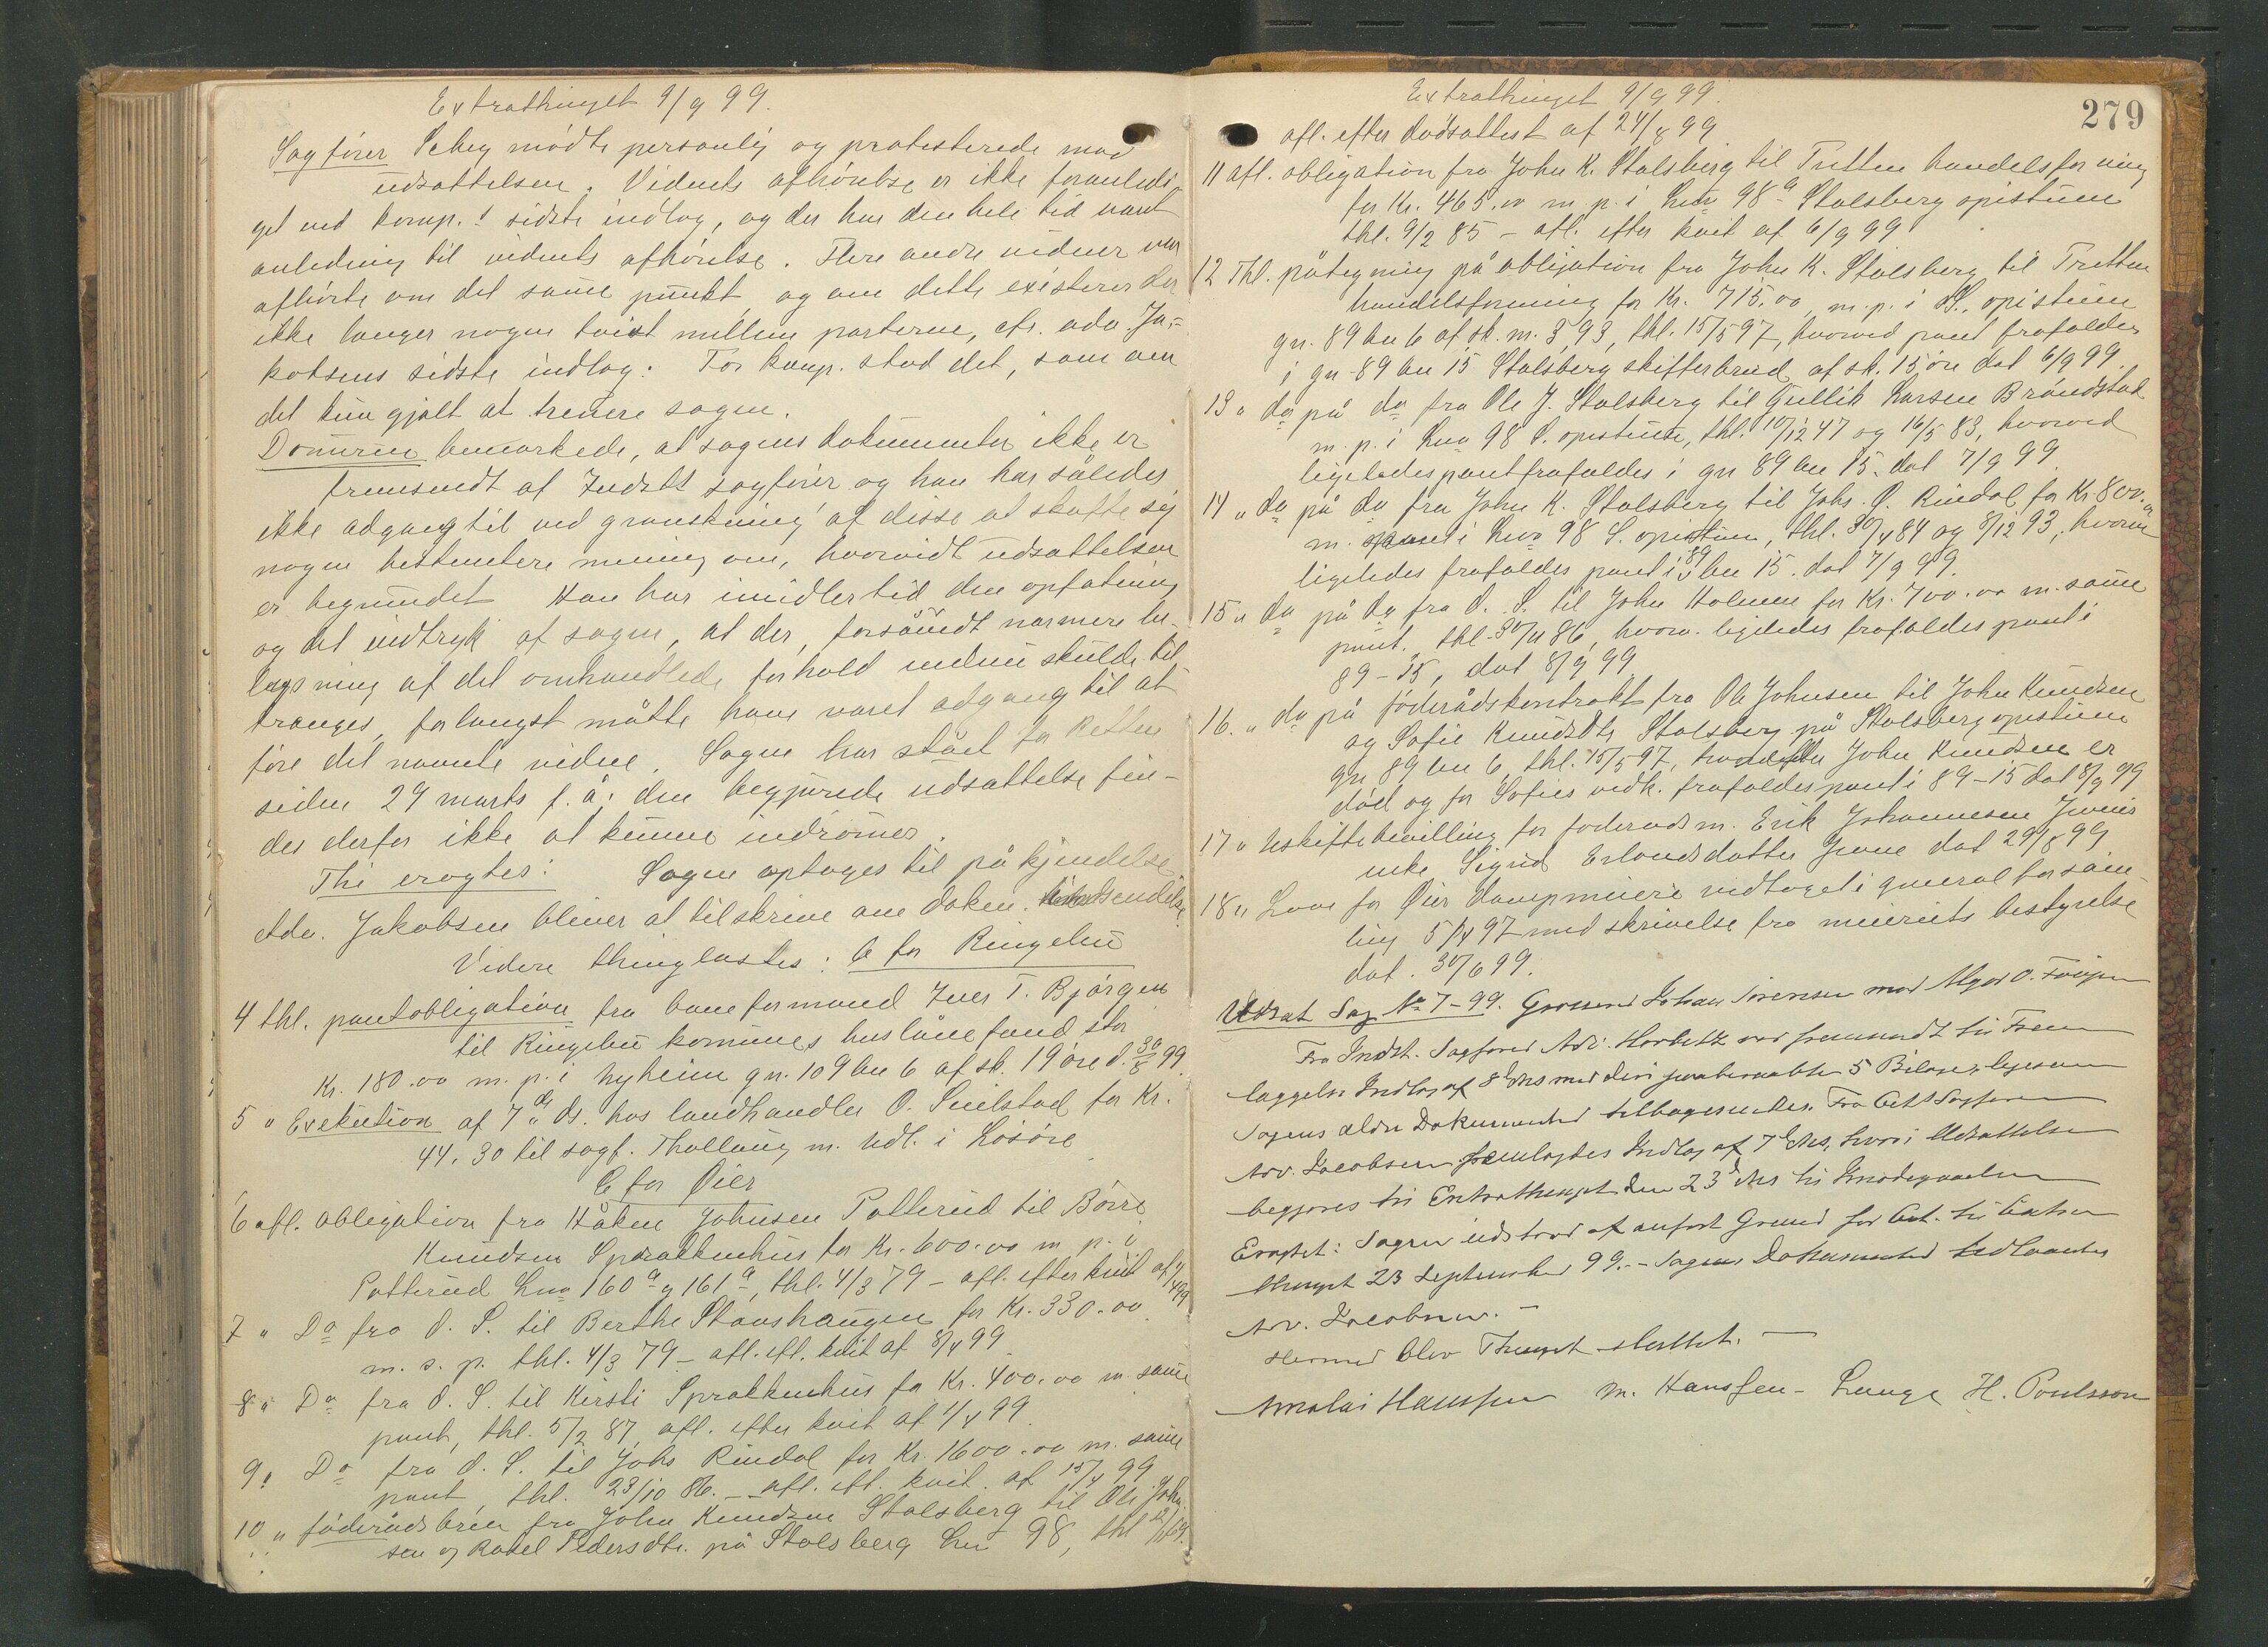 Extrathinget 9/9 99.
Sagfører Scheg mødte personlig og protesterede mod
udsættelsen. Vidnets afhørelse er ikke foranledi-
get ved komp.s sidste indlæg, og der har den hele tid været
anledning til vidnets afhørelse. Flere andre vidner var
afhørte om det samme punkt, og om dette existerer der
ikke længer nogen tvist mellem parterne, cfr. adv. Ja-
kobsens sidste indlæg. For komp. stod det, som om
det kun gjalt at trenere sagen.
Domeren bemærkede, at sagens dokumenter ikke er
fremsendt af Indst.s sagfører og han har således
ikke adgang til ved granskning af disse at skaffe sig
nogen bestemtere mening om, hvorvidt udsættelsen
er begrundet. Han har imidlertid den opfatning
og det indtryk af sagen, at der, forsåvidt nærmere be-
lysning af det omhandlede forhold endnu skulde til-
trænges, forlængst måtte have været adgang til at
føre det nævnte vidne. Sagen har stået for Retten
siden 29 marts f. å.; den begjærede udsættelse fin-
des derfor ikke at kunne indrømmes.
Thi eragtes: Sagen optages til påkjendelse
Adv. Jakobsen bliver at tilskrive om dokum. indsendelse.
Videre thinglæstes: b for Ringebu
4 thl. pantobligation fra baneformand Iver T. Bjørgen
til Ringebu kommunes huslånefond stor
Kr. 180.00 m. p. i Nyheim gn. 109 bn 6 af sk. 19 øre d. 30/8 99.
5 " Exekution af 7de ds. hos landhandler O. Smilstad for Kr.
44.30 til sagf. Thallaug m. udl. i Løsøre
C for Øier
6 afl. obligation fra Håken Johnsen Potterud til Børre
Knudsen Sprækkenhus for Kr. 600.00 m p. i
Potterud Lno 160a og 161a, thl. 4/3 79 - afl. efter kvit af 1/4 99
7 " Do fra d. S. til Berthe Stavshaugen for Kr. 330.00
m. s. p. thl. 4/3 79 - afl. eft. kvit af 8/4 99
8 " Do fra d. S. til Kersti Sprækkenhus for Kr. 400.00 m. same
pant, thl. 5/2 87, afl. efter kvit af 1/4 99.
9 " Do fra d. S. til Johs Rindal for Kr. 1600.00 m. same
pant, thl. 23/10 86. - afl. eft. kvit. af 15/4 99
10 " føderådsbrev fra John Knudsen Stalsberg til Ole John-
sen og Rasel Pedersdtr. på Stalsberg Lno 98, thl
Extrathinget 9/9 99.
279
afl. efter dødsattest af 24/8 99
11 afl. obligation fra John K. Stalsberg til Tretten handelsforning
for Kr. 465.00 m. p. i Lno 98a Stalsberg opistuen
thl. 9/2 85 - afl. efter kvit af 6/9 99
12 Thl. påtegning på obligation fra John K. Stalsberg til Tretten
handelsforening for Kr. 715.00 m. p. i St., opistuen
gn. 89 bn 6 af sk. m. 3,93, thl. 15/5 97, hvorved pant frafaldes
i gn 89 bn 15 Stalsberg skifterbrud af sk. 15 øre dat 6/9 99.
13 " do på do fra Ole J. Stalsberg til Gullik Larsen Brandstad
m. p. i Lno 98 S. opistuen, thl. 10/12 47 og 16/5 83, hvorved
ligeledes pant frafaldes i gn 89 bn 15. dat 7/9 99.
14 " do på do fra John K. Stalsberg til Johs. P. Rindal for Kr. 800.00
m. pant i Lno 98 S. opistuen, thl. 30/4 84 og 8/12 93, hvorved
ligeledes frafaldes pant i 89 bn 15. dat 7/9 99.
15 " do på do fra d. S. til John Holmen for Kr. 700.00 m. same
pant. thl. 30/11 86, hvorv. ligeledes frafaldes pant i
89-15, dat 8/9 99
16. " do på føderådskontrakt fra Ole Johnsen til John Knudsen
og Sofie Knudsdtr Stalsberg på Stalsberg opistuen
gn 89 bn 6, thl. 15/5 97, hvorefter John Knudsen er
død og for Sofies vedk. frafaldes pant i 89-15 dat 8/9 99
17 " Uskiftebevilling for føderådsm. Erik Johannesen
enke Sigrid Erlandsdatter dat 29/8 99
18 " Love for Øier Dampmeieri vedtaget i general forsam-
ling 5/4 97 med skrivelse fra meieriets bestyrelse
dat. 30/6 99.
Udsat Sag No 7-99. Grosserer Johan Sørensen mod
Fra Indst. Sagfører Adv. Horbitz var fremsendt til Frem-
læggelse Indlæg af 8de ds med deri paaberaabte 5 Bilage, ligesom
Sagens ældre Dokumenter tilbagesendtes. Fra Citt Sagfører
Adv. Jacobsen fremlagdes Indlæg af 7de ds, hvori Udsættelse
begjæres til Extrathinget den 23de ds til Imødegaaelse
Eragtet: Sagen udstaar af anført Grund for Cit. til Extra-
thinget 23 September 99. - Sagens Dokumenter udlaantes
Adv. Jacobsen. -
Hermed blev Thinget sluttet. -
Nicolai Hanssen M. Hanssen - Lunge H. Poulsson